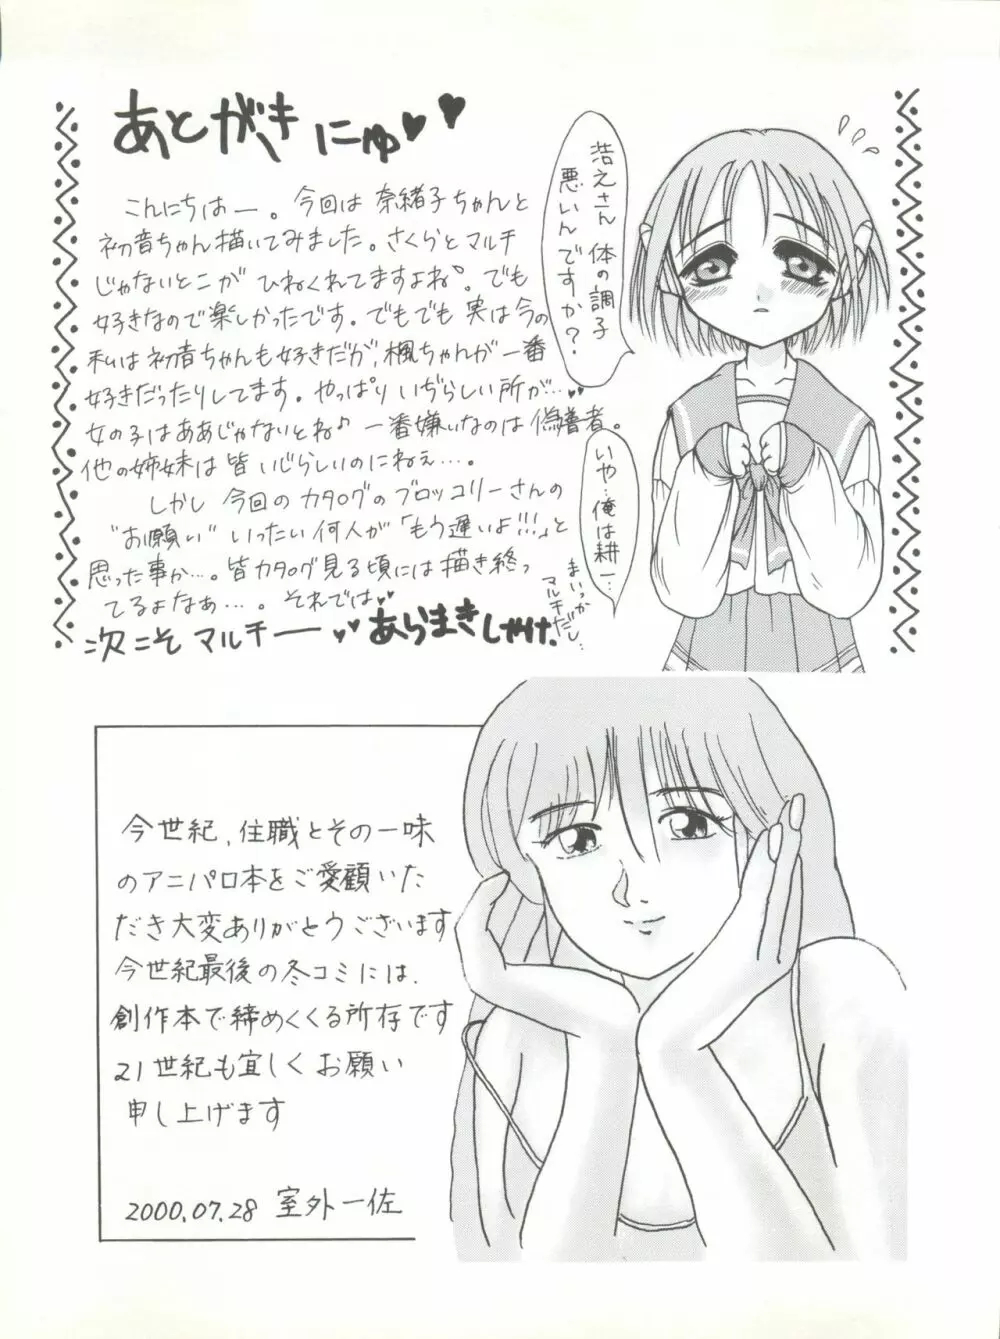 あとがきにゅ♥♥
こんにちはー。今回は奈緒子ちゃんと
初音ちゃん描いてみました。さくらとマルチ
じゃないとこがひねくれてますよね。でも
好きなので楽しかったです。でもでも実は今の
私は初音ちゃんも好きだが、楓ちゃんが一番
好きだったりしてます。やっぱりいぢらしい所が…♥♥
女の子はああじゃないとね♪一番嫌いなのは偽善者。
他の姉妹は皆いじらしいのにねぇ…。
しかし今回のカタログのブロッコリーさんの
"お願い"いったい何人が「もう遅いよ!!!」と
思った事か…。皆カタログ見る頃には描き終っ
てるよなぁ…。それでは♥♥
次こそマルチー♥♥あらまきしゃけ.
浩之さん体の調子
悪いんですか?
いや…俺は耕一…
まいっか
マルチだし…
今世紀、住職とその一味
のアニパロ本をご愛顧いた
だき大変ありがとうございます
今世紀最後の冬コミには、
創作本で締めくくる所存です
21世紀も宜しくお願い
申し上げます
2000.07.28 室外一佐